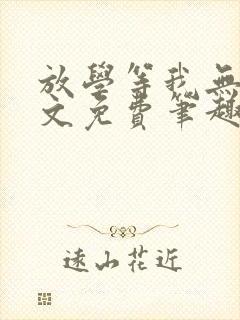 放學等我無
文免費筆趣
遠山花近